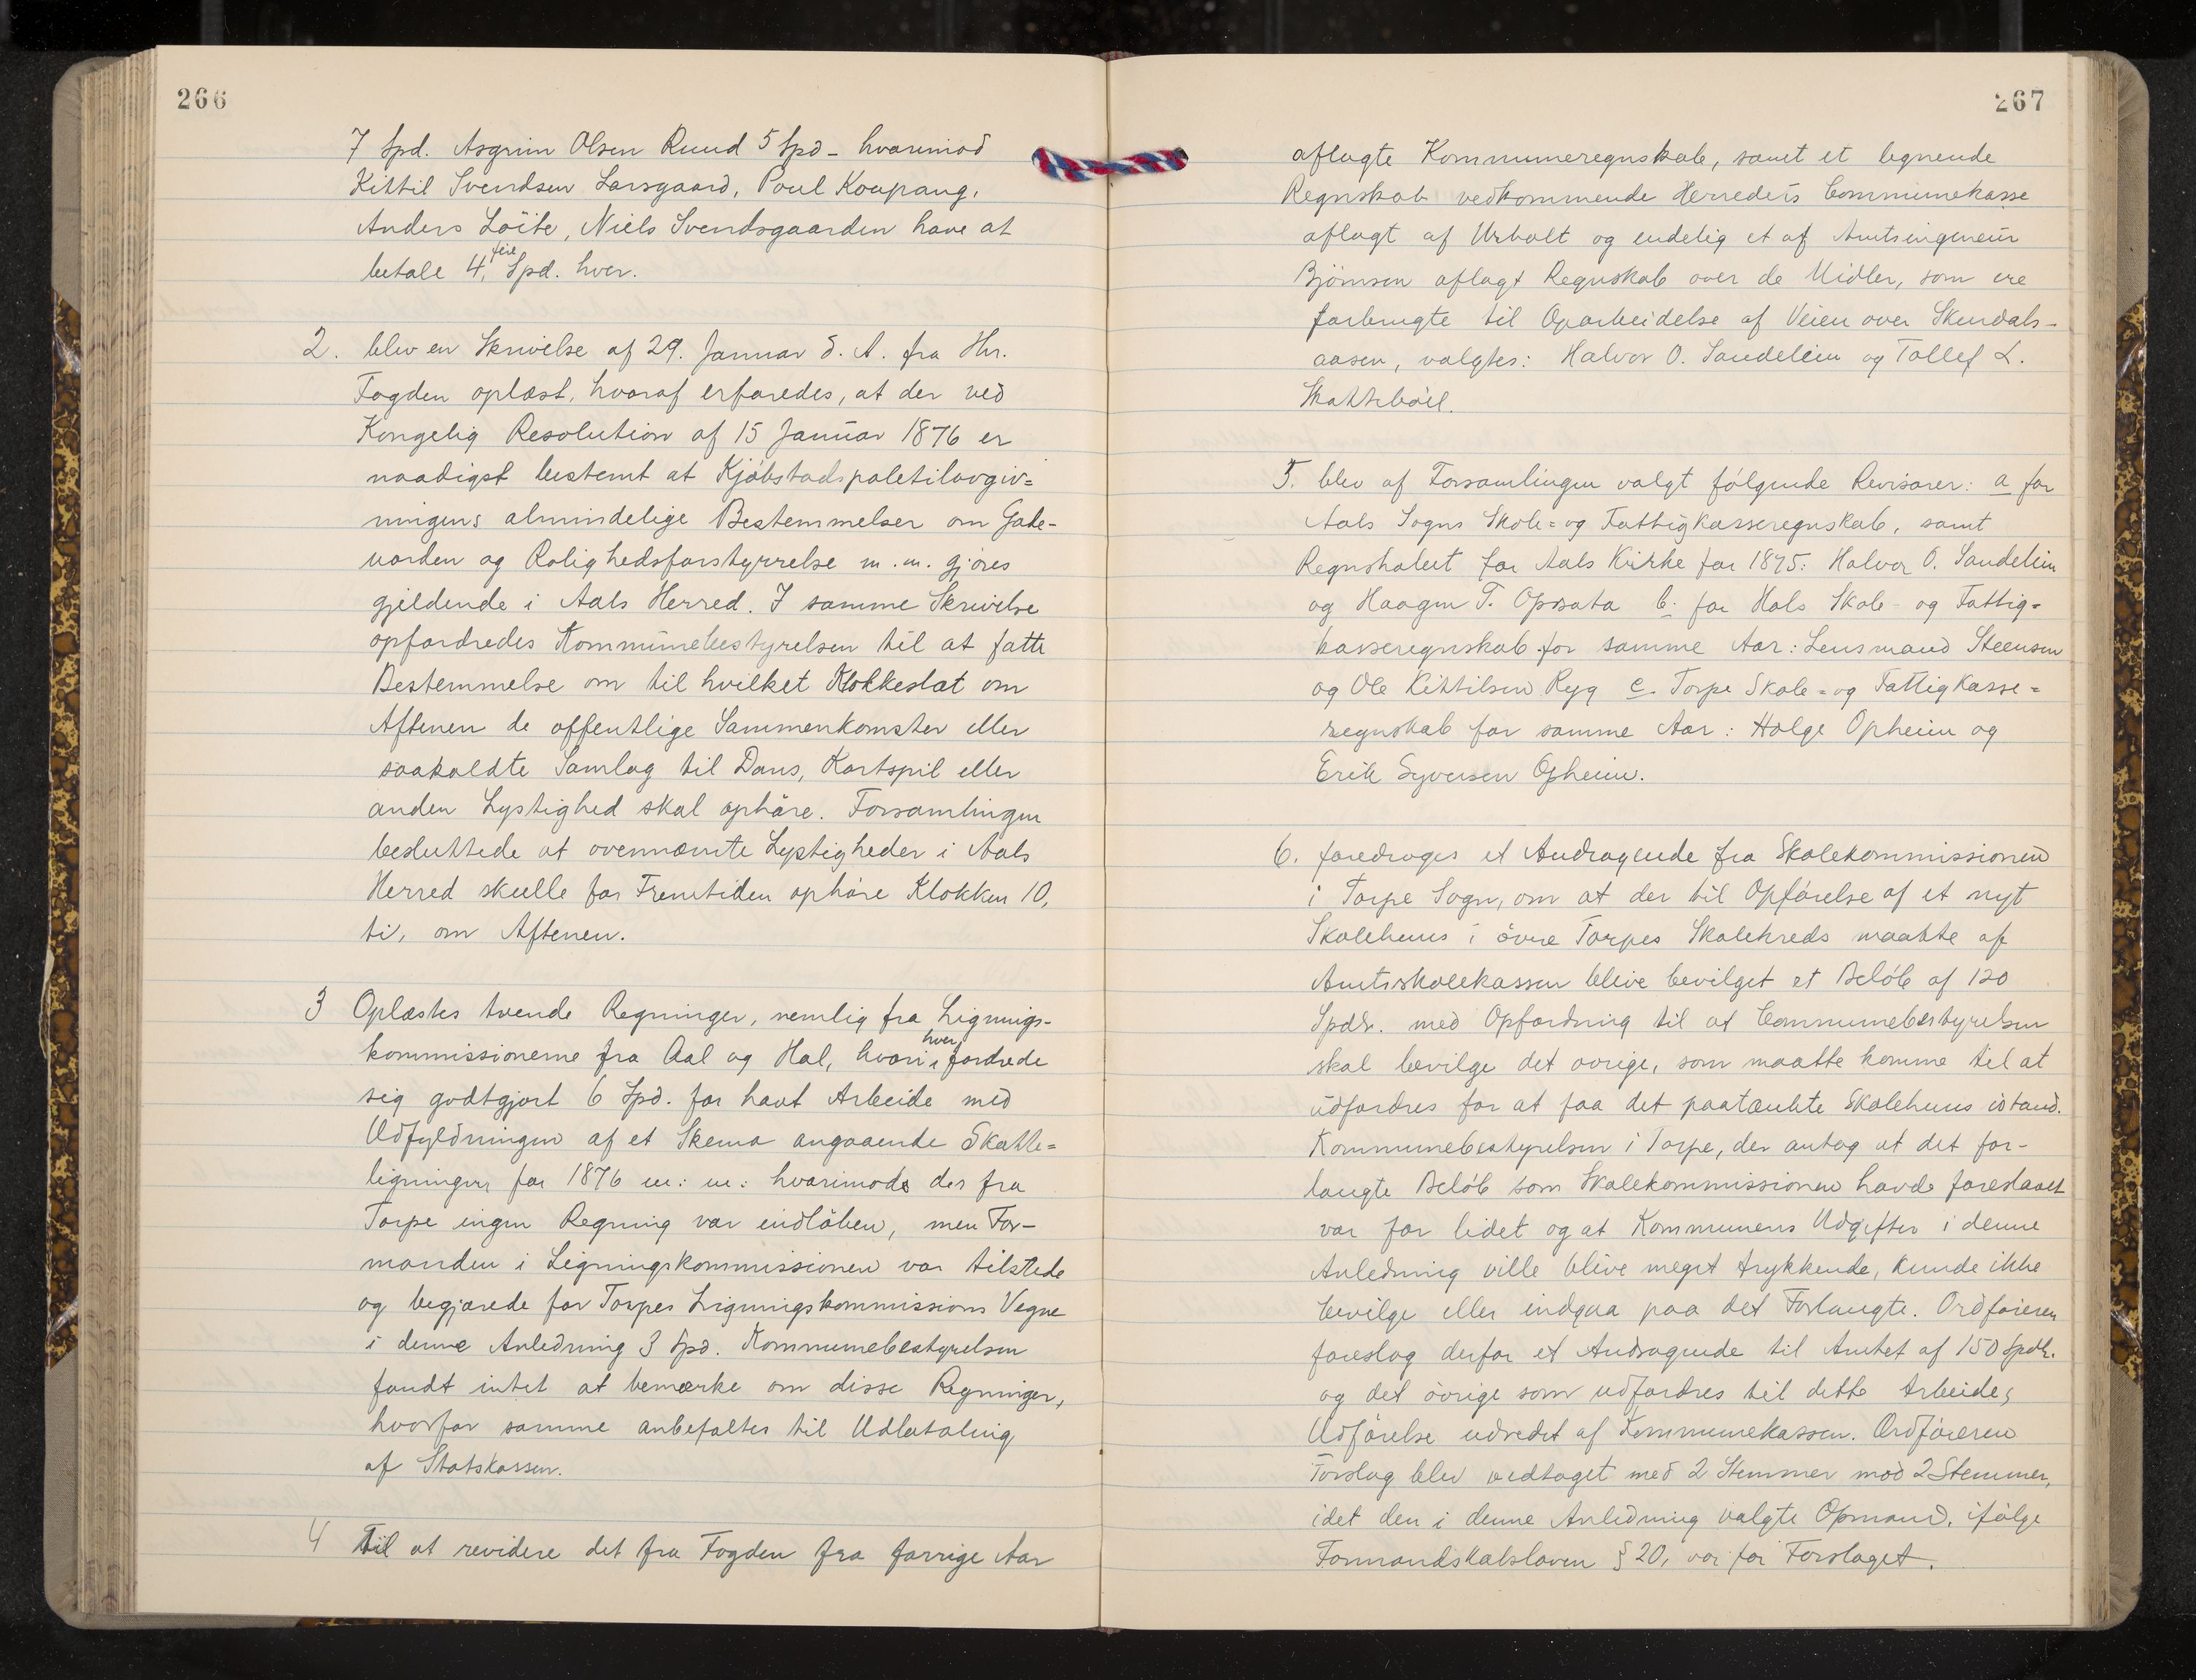 266
7 Spd. Asgrim Olsen Ruud 5 Spd - hvorimod
Kittil Svendsen Larsgaard, Poul Koupang,
Anders Löite, Niels Svendsgaarden have at
betale 4, fire Spd. hver.
2. blev en Skrivelse af 29. Januar d. A. fra Hr.
Fogden oplæst, hvoraf erfaredes, at der ved
Kongelig Resolution af 15 Januar 1876 er
naadigst bestemt at Kjöbstadspoletilovgiv=
ningens almindelige Bestemmelser om Gade-
uorden og Rolighedsforstyrrelse m. m. gjöres
gjeldende i Aals Herred. I samme Skrivelse
opfordredes Kommunebestyrelsen til at fatte
Bestemmelse om til hvilket Klokkeslat om
Aftenen de offentlige Sammenkomster eller
saakaldte Samlag til Dans, Kortspil eller
anden Lystighed skal ophöre. Forsamlingen
besluttede at ovennævnte Lystigheder i Aals
Herred skulle for Fremtiden ophöre Klokken 10,
ti, om Aftenen.
3 Oplæstes tvende Regninger, nemlig fra Lignings-
kommissionerne fra Aal og Hol, hvori hver fordrede
sig godtgjort 6 Spd. for havt Arbeide med
Udfyldningen af et Skema angaaende Skatte=
ligningen for 1876 m: m: hvorimod der fra
Torpe ingen Regning var indlöben, men For-
manden i Ligningskommissionen var tilstede
og begjærede for Torpes Ligningskommissions Vegne
i denne Anledning 3 Spd. Kommunebestyrelsen
fandt intet at bemærke om disse Regninger,
hvorfor samme anbefaltes til Udbetaling
af Statskassen.
4 Til at revidere det fra Fogden fra forrige Aar
267
aflagte Kommuneregnskab, samt et lignende
Regnskab vedkommende Herredets Communekasse
aflagt af Usholt og endelig et af Amtsingeneur
Bjömsen aflagt Regnskab over de Midler, som ere
forbrugte til Oparbeidelse af Veien over Skurdals-
aasen, valgtes: Halvor O. Sandelein og Tollef L.
Skattebøel.
5. blev af Forsamlingen valgt fölgende Revisorer: a for
Aals Sogns Skole= og Fattigkasseregnskab, samt
Regnskabet for Aals Kirke for 1875: Halvor O. Sandelein
og Haagen T. Opsata b. for Hols Skole- og Fattig=
kasseregnskab for samme Aar: Lensmand Steensen
og Ole Kittilsen Ryg c. Torpe Skole= og Fattigkasse=
regnskab for samme Aar: Holge Opheim og
Erik Syversen Opheim.
6. foredroges et Andragende fra Skolekommissionen
i Torpe Sogn, om at der til Opförelse af et nyt
Skolehuus i övre Torpes Skolekreds maatte af
Amtsskolekassen blive bevilget et Belöb af 120
Spdlr. med Opfordring til at Communebestyrelsen
skal bevilge det ovrige, som maatte komme til at
udfordres for at faa det paatænkte Skolehuus istand.
Kommunebestyrelsen i Torpe, der antog at det for-
langte Belöb som Skolekommissionen havde foreslaaet
var for lidet og at Kommunens Udgifter i denne
Anledning ville blive meget trykkende, kunde ikke
bevilge eller indgaa paa det Forlangte. Ordföreren
foreslog derfor et Andragende til Amtet af 150 Spdlr.
og det övrige som udfordres til dette Arbeides
Udförelse udredet af Kommunekassen. Ordföreren
Forslag blev vedtaget med 2 Stemmer mod 2 Stemmer,
idet den i denne Anledning valgte Opmand, ifölge
Formandskabsloven § 20, var for Forslaget.